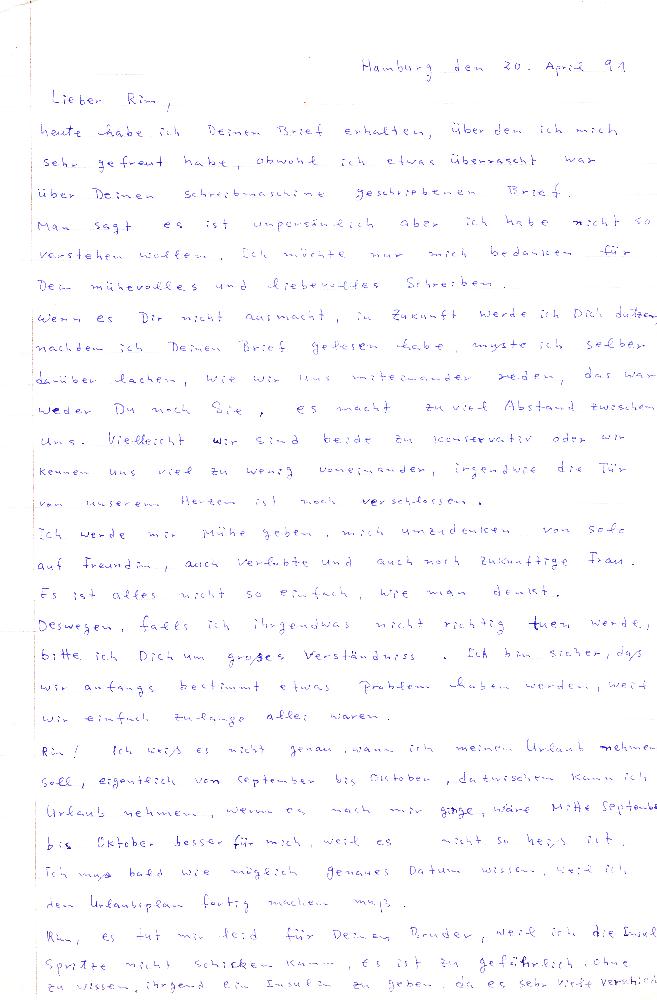 Hamburg den 20. April 91
Lieber Rim,
heute habe ich Deinen Brief erhalten, über den ich mich
sehr gefreut habe, obwohl ich etwas überrascht war
über Deinen schreibmaschine geschriebenen Brief.
Man sagt es ist unpersönlich aber ich habe nicht so
verstehen wollen. Ich möchte nur mich bedanken für
Dein mühevolles und liebevolles Schreiben.
wenn es Dir nicht ausmacht, in Zukunft werde ich Dich dutzen,
nachdem ich Deinen Brief gelesen habe, myste ich selber
darüber lachen, wie wir uns miteinander reden, das war
weder Du noch Sie, es macht zu viel Abstand zwischen
uns. Vielleicht wir sind beide zu konservativ oder wir
kennen uns viel zu wenig voneinander, irgendwie die Tür
von unserem Herzen ist noch verschlossen.
Ich werde mir Mühe geben, mich umzudenken von
auf Freundin, auch verlobte und auch noch zukunftige Frau.
Es ist alles nicht so einfach, wie man denkt.
Deswegen, falls ich ihrgendwas nicht richtig tuen werde,
bitte ich Dich um großes Verständniss. Ich bin sicher, das
wir anfangs bestimmt etwas Problem haben werden, weil
wir einfach zulange allei waren.
Rim! Ich weiß es nicht genau, wann ich meinen Urlaub nehmen
soll, eigentlich von september bis Oktober, dazwischen kann ich
Urlaub nehmen, wenn es nach mir ginge, wäre Mitte September
bis Oktober besser für mich, weil es nicht so heiß ist.
ich muß bald wie möglich genaues Datum wissen, weil ich
den Urlaubsplan fertig machen muß.
Rim, es tut mir leid für Deinen Bruder, weil ich die Insul
Spritze nicht schicken kann, Es ist zu gefährlich ohne
zu wissen, ihrgend ein Insulin zu geben, da es sehr viele verschied